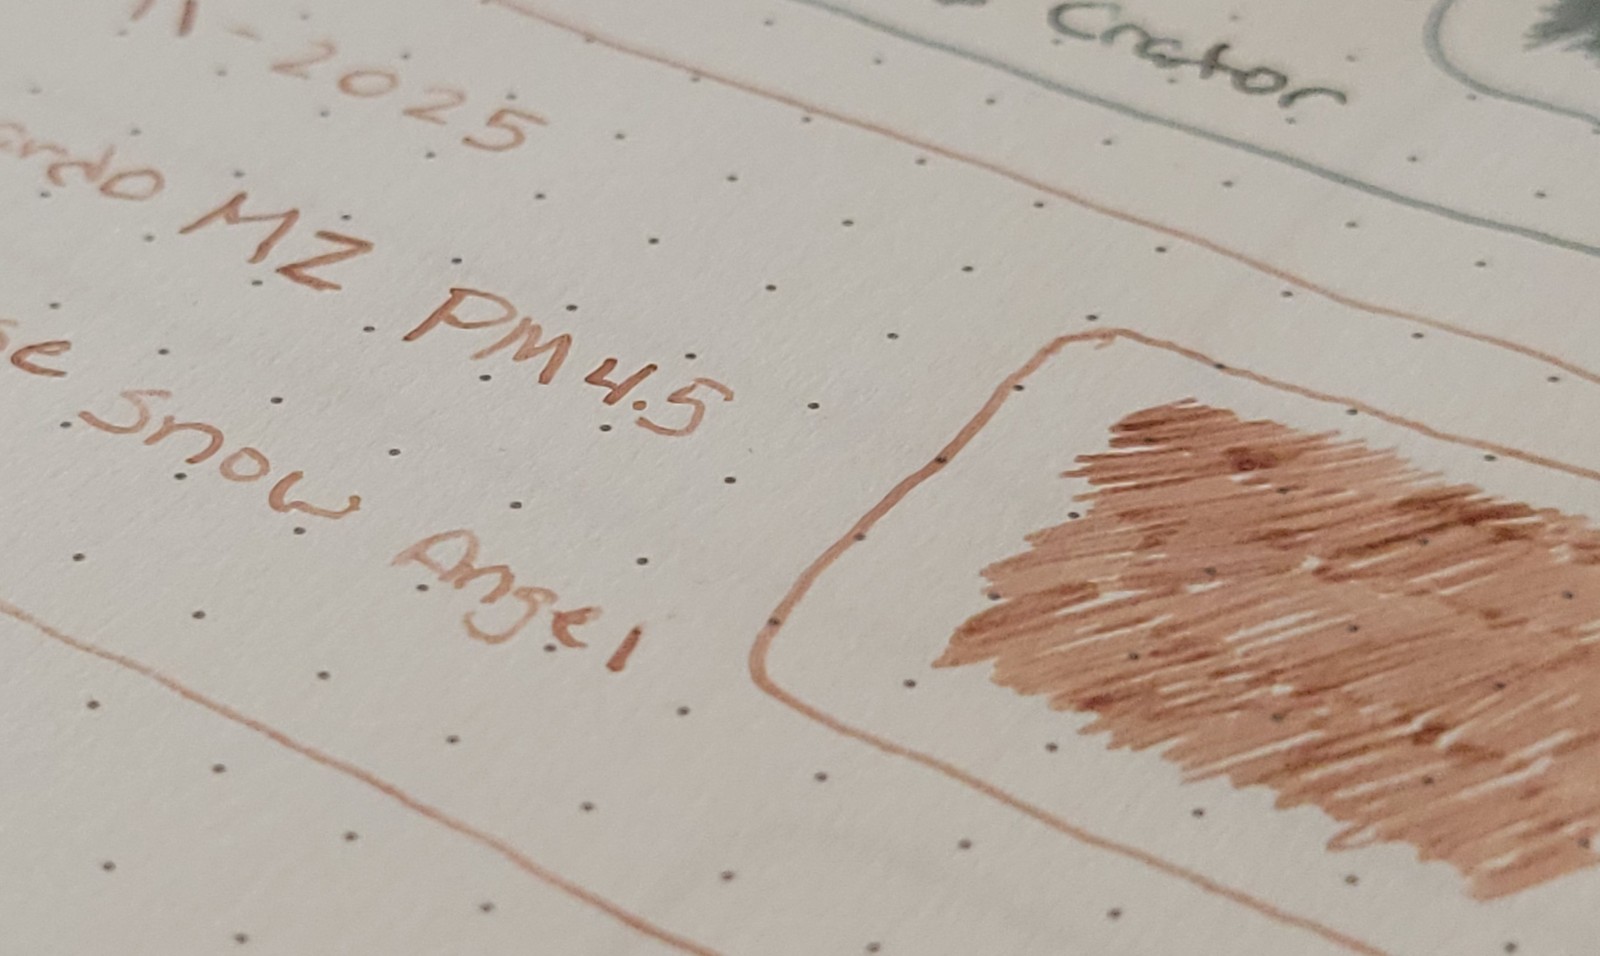 Crator
-2025
MZ PM4.5
Snow Angel